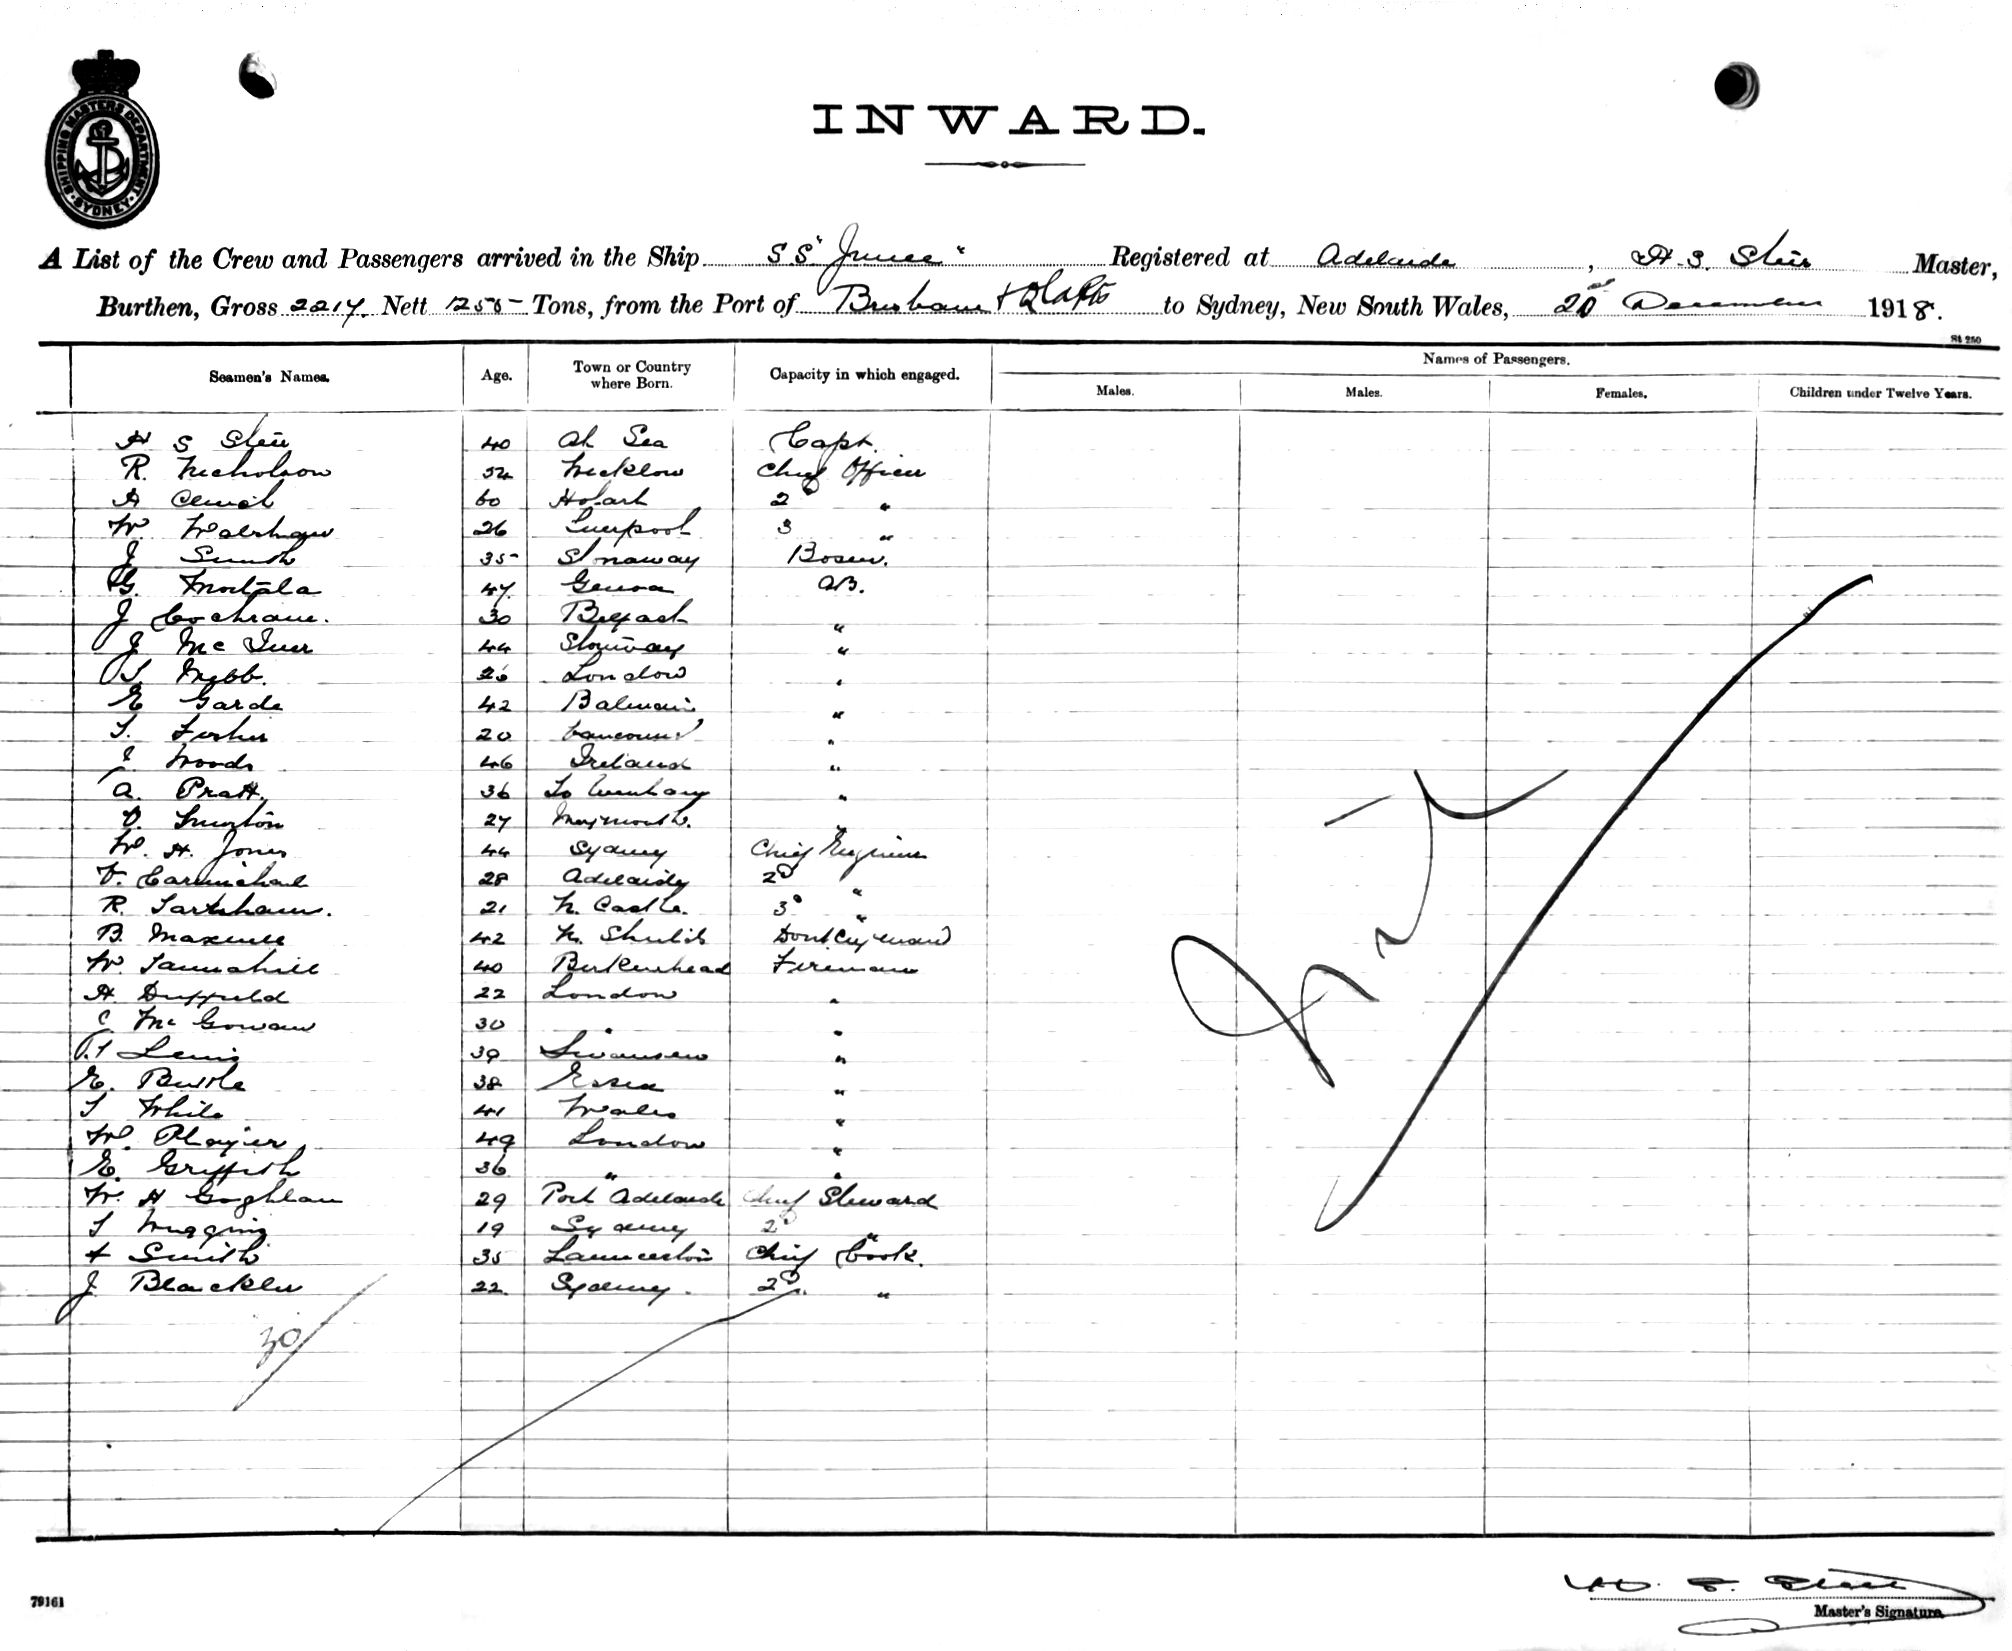 SHIPPING MASTERS DEPARTMENT SYDNEY
INWARD.
A List of the Crew and Passengers arrived in the Ship S S "Junee" Registered at Adelaide, H. S. Master,
Burthen, Gross 2217. Nett 1255 Tons, from the Port of to Sydney, New South Wales, December 1918.
St 250
Seamen's Names. Age. Town or Country where Born. Capacity in which engaged. Names of Passengers.
Males. Males. Females. Children under Twelve Years.
H S 40 At Sea Capt.
R. Nicholson Wicklow Chief Officer
A 60 Hobart 2d "
W. 26 Liverpool 3 "
J Smith 35 Bosun.
G. 47 Genoa AB.
J Cochrane. 30 Belfast "
J Mc 44 "
Webb. London "
E Garde 42 Balmain "
T. Fisher 20 "
J. Woods 46 Ireland "
A. Pratt. 36 "
27 "
W. H. Jones 44 Sydney Chief Engineer
Carmichael 28 Adelaide 2d "
R. 21 N. Castle. 3d "
B. Maxwell 42 N. Shields
W. Tannahill 40 Birkenhead Fireman
H. Duffield 22 London "
C. Mc Gowan 30 " "
Lewis 39 Swansea "
E. 38 Essex "
T White 41 Wales "
W. Player 49 London "
E. Griffith 36 " "
W. H Coghlan 29 Port Adelaide Chief Steward
T 19 Sydney 2d "
Smith 35 Launceston Chief Cook.
J. Blackler 22 Sydney. 2d "
30
79161
Master's Signature